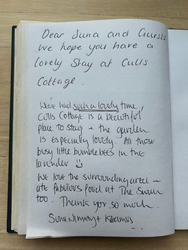 Dear Suna and Guests
We hope you have a
lovely stay at Culls
Cottage.
We've had such a lovely time!
Culls Cottage is a beautiful
place to stay & the garden
is especially lovely. All those
busy little bumblebees in the
lavender
We love the surrounding area -
ate fabulous food at The Swan
too. Thank you so much.
Suna